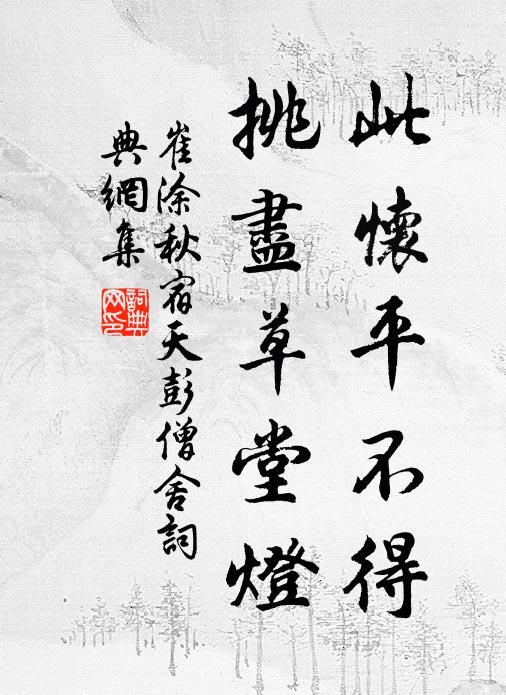 此懷平不得
挑盡草堂燈
崔涂秋宿天彭僧舍詞
典網集
詞典
网印